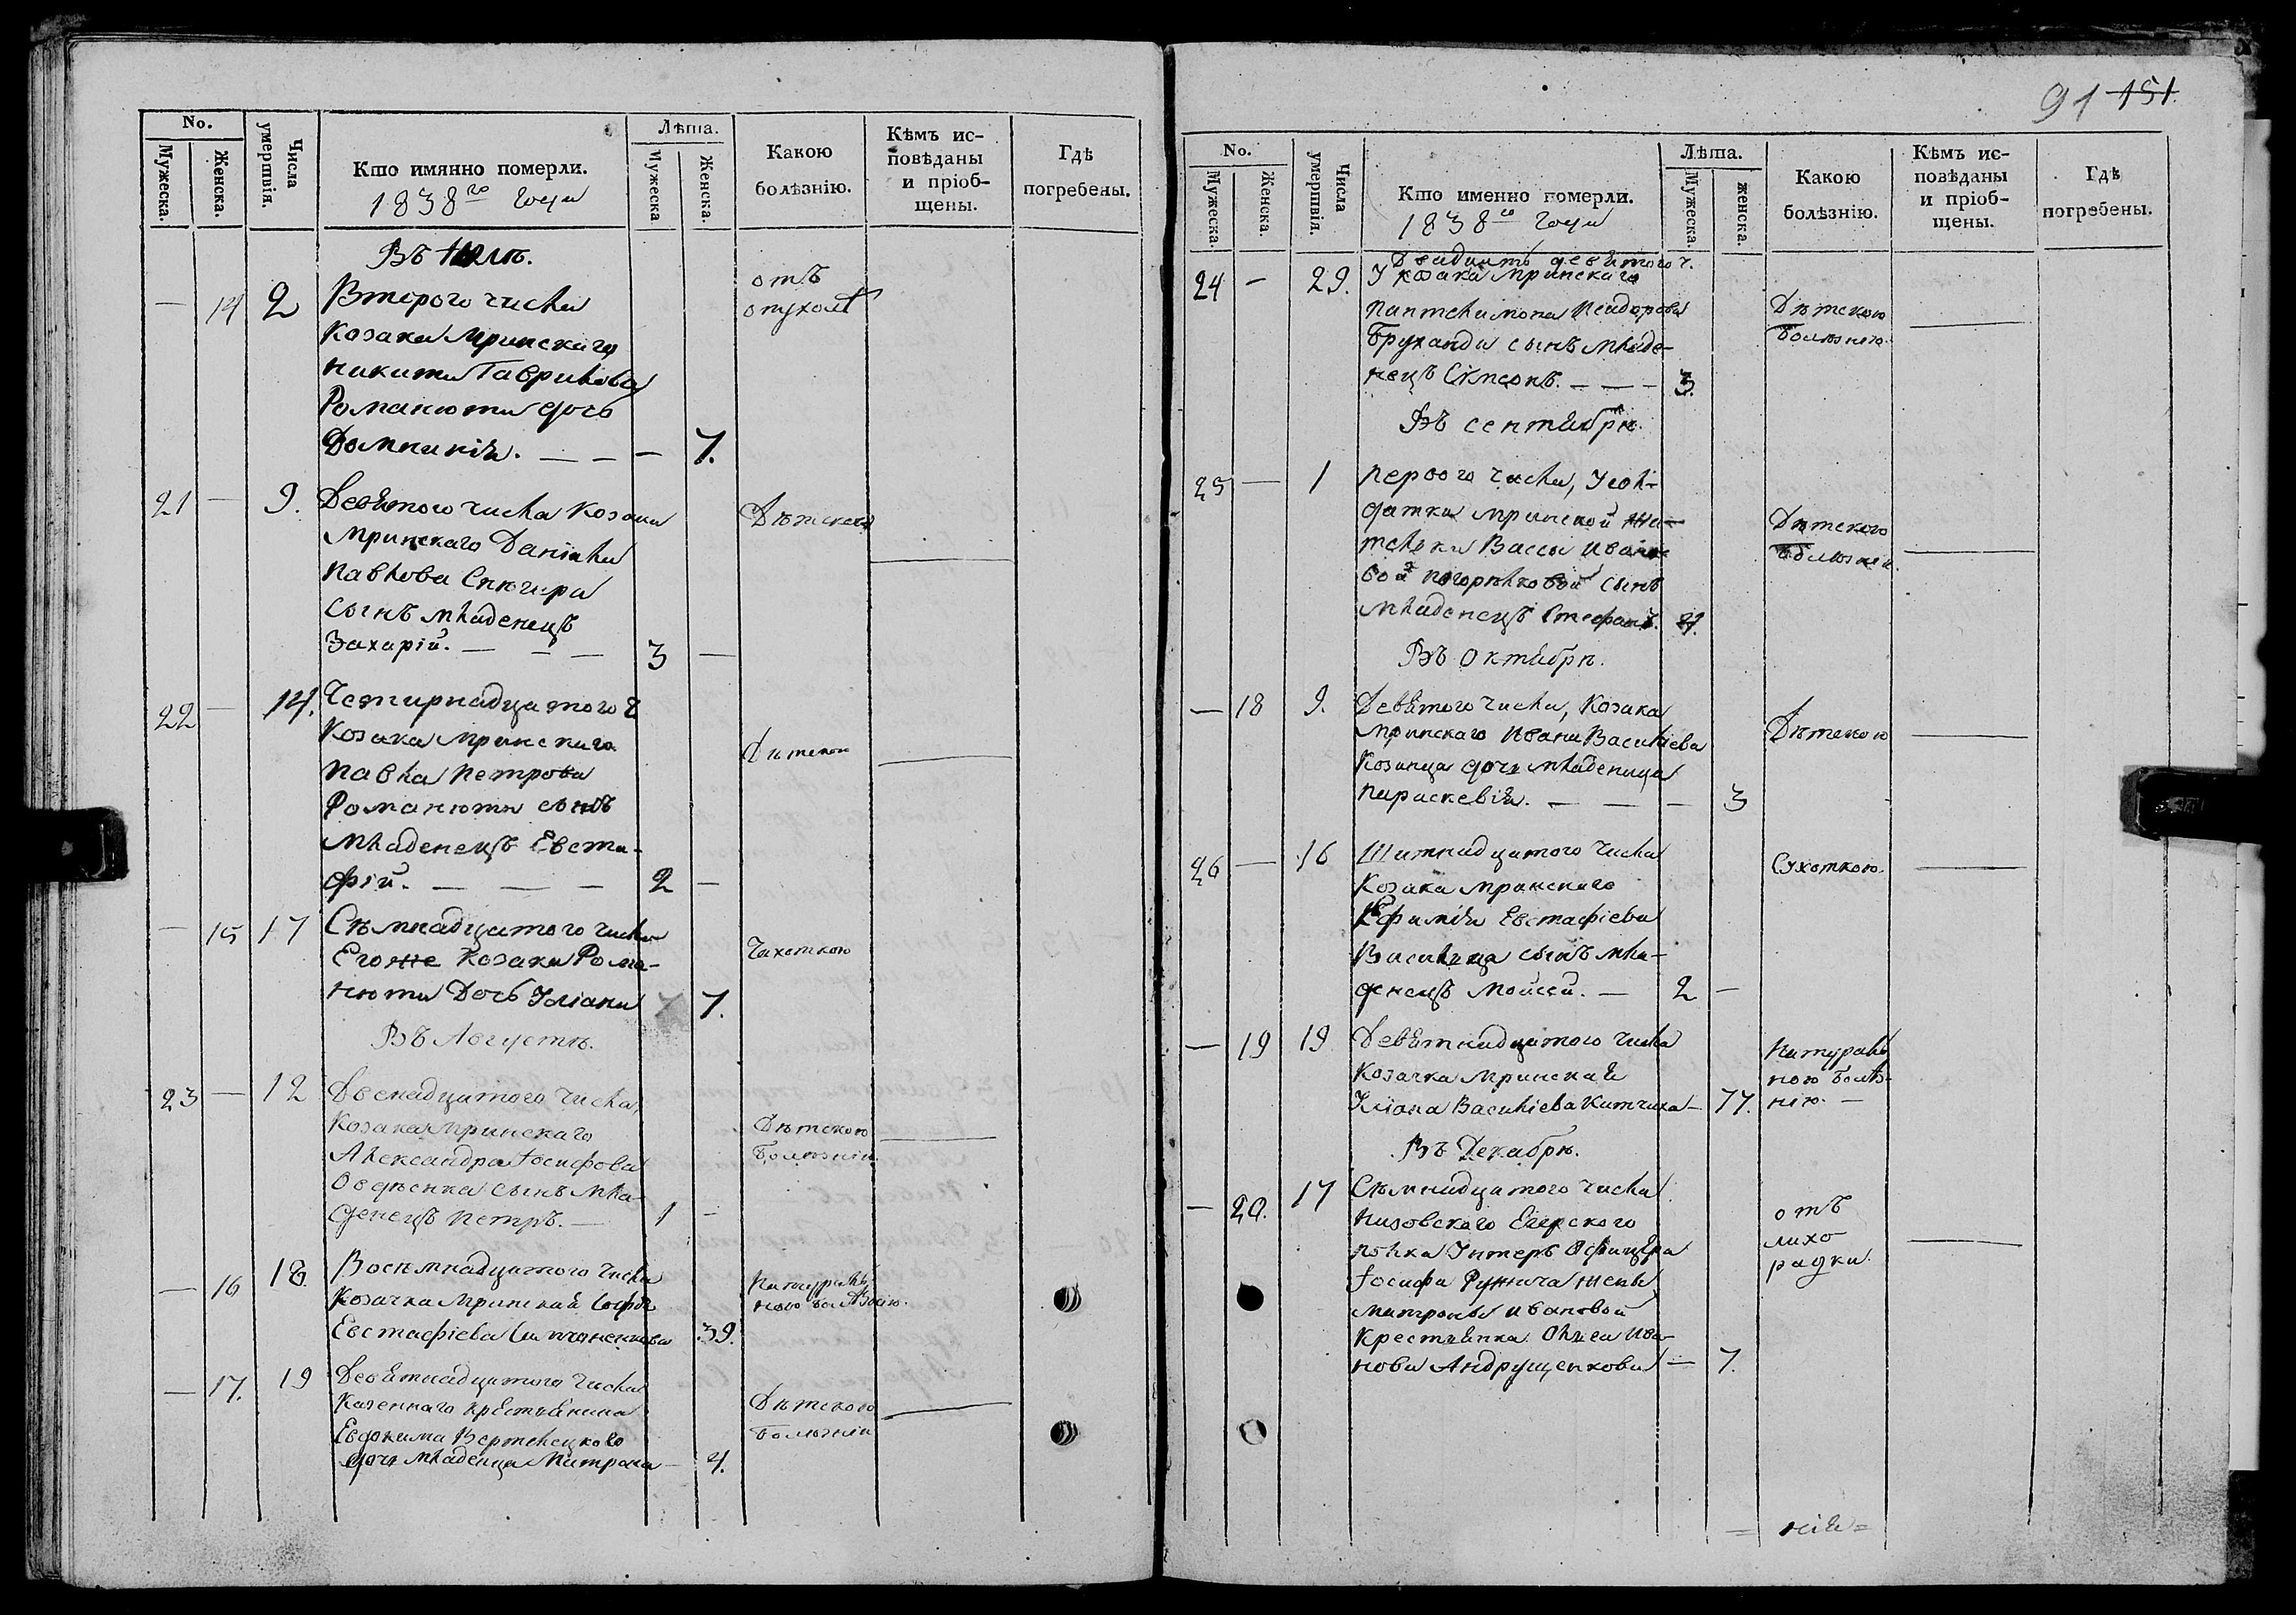 91 151.
No.
Мужеска.
Женска.
Числа умертвія.
Кто имянно померли.
1838го года
Лѣта.
Мужеска
Женска.
Какою болѣзнію.
Кѣмъ ис-
повѣданы
и пріоб-
щены.
Гдѣ
погребены.
Въ Юлѣ.
— 14 2 Второго числа
козака Мринскаго
Никити Гаврилова
Романюти дочь
Домникія. — — — 7.
отъ
опухолѣ
21 — 9. Девятого числа козака
Мринскаго Даніила
Павлова Снѣгира
сынъ младенецъ
Захарій. — — — 3 —
Дѣтскою
22 — 14. Четирнадцатого ч
Козака Мринскаго
Павла Петрова
Романюти сынъ
младенецъ Евста-
фій. — — — 2 —
Дѣтскою
— 15 17 Сѣмнадцатого числа
Егоже козака Рома-
нюти Дочь Уліана 7.
Чахоткою
Въ Августѣ.
23 — 12 Двенадцатого числа,
Козака Мринскаго
Александра Іосифова
Овдѣенка сынъ мла-
денецъ Петръ. — 1 —
Дѣтскою
болѣзнію
— 16 18. Восемнадцатого числа
Козачка Мринская Софія
Евстафіева 39.
Натураль-
ною болѣзнію.
— 17. 19 Девятнадцатого числа
Казеннаго крестьянина
Евдокима Вертелецкого
дочь младенца Матрона — 4.
Дѣтскою
болѣзнію
No.
Мужеска.
Женска.
Числа умертвія.
Кто именно померли.
1838го года
Лѣта.
Мужеска.
женска.
Какою
болѣзнію.
Кѣмъ ис-
повѣданы
и пріоб-
щены.
Гдѣ
погребены.
Двадцать девятого ч.
24 — 29. У козака Мринскаго
Пантелимона Исидорова
Бруханди сынъ младе-
нецъ Сімеонъ. — — — 3.
Дѣтскою
болѣзнею.
Въ сентябрѣ.
25 — 1 первого числа, У сол-
датки Мринской жи-
тельки Васси Ивано-
вой Погорѣлковой сынъ
младенецъ Стефанъ. 4.
Дѣтскою
болѣзнею.
Въ Октябрѣ.
— 18 9. Девятого числа, Козака
Мринскаго Ивана Василіева
Козинца дочь младеница
Параскевія. — — — 3
Дѣтскою
26 — 16 Шатнадцатого числа
Козака Мринскаго
Ефимія Евстафіева
Василца сынъ мла-
денецъ Мойсей. — 2 —
Сухоткою.
— 19 19 Девятнадцатого числа
Козачка Мринская
Уліана Василіева Китчиха — 77.
Натураль
ною болѣз-
нію. —
Въ Декабрѣ.
— 20. 17 Сѣмнадцатого числа
Низовского Егерского
полка Унтеръ Офицера
Іосифа Ружича жены
Матроны Ивановой
Крестьянка Олиса Ива-
нова Андрущенкова — 7.
отъ
лихо
радки.
= нія =